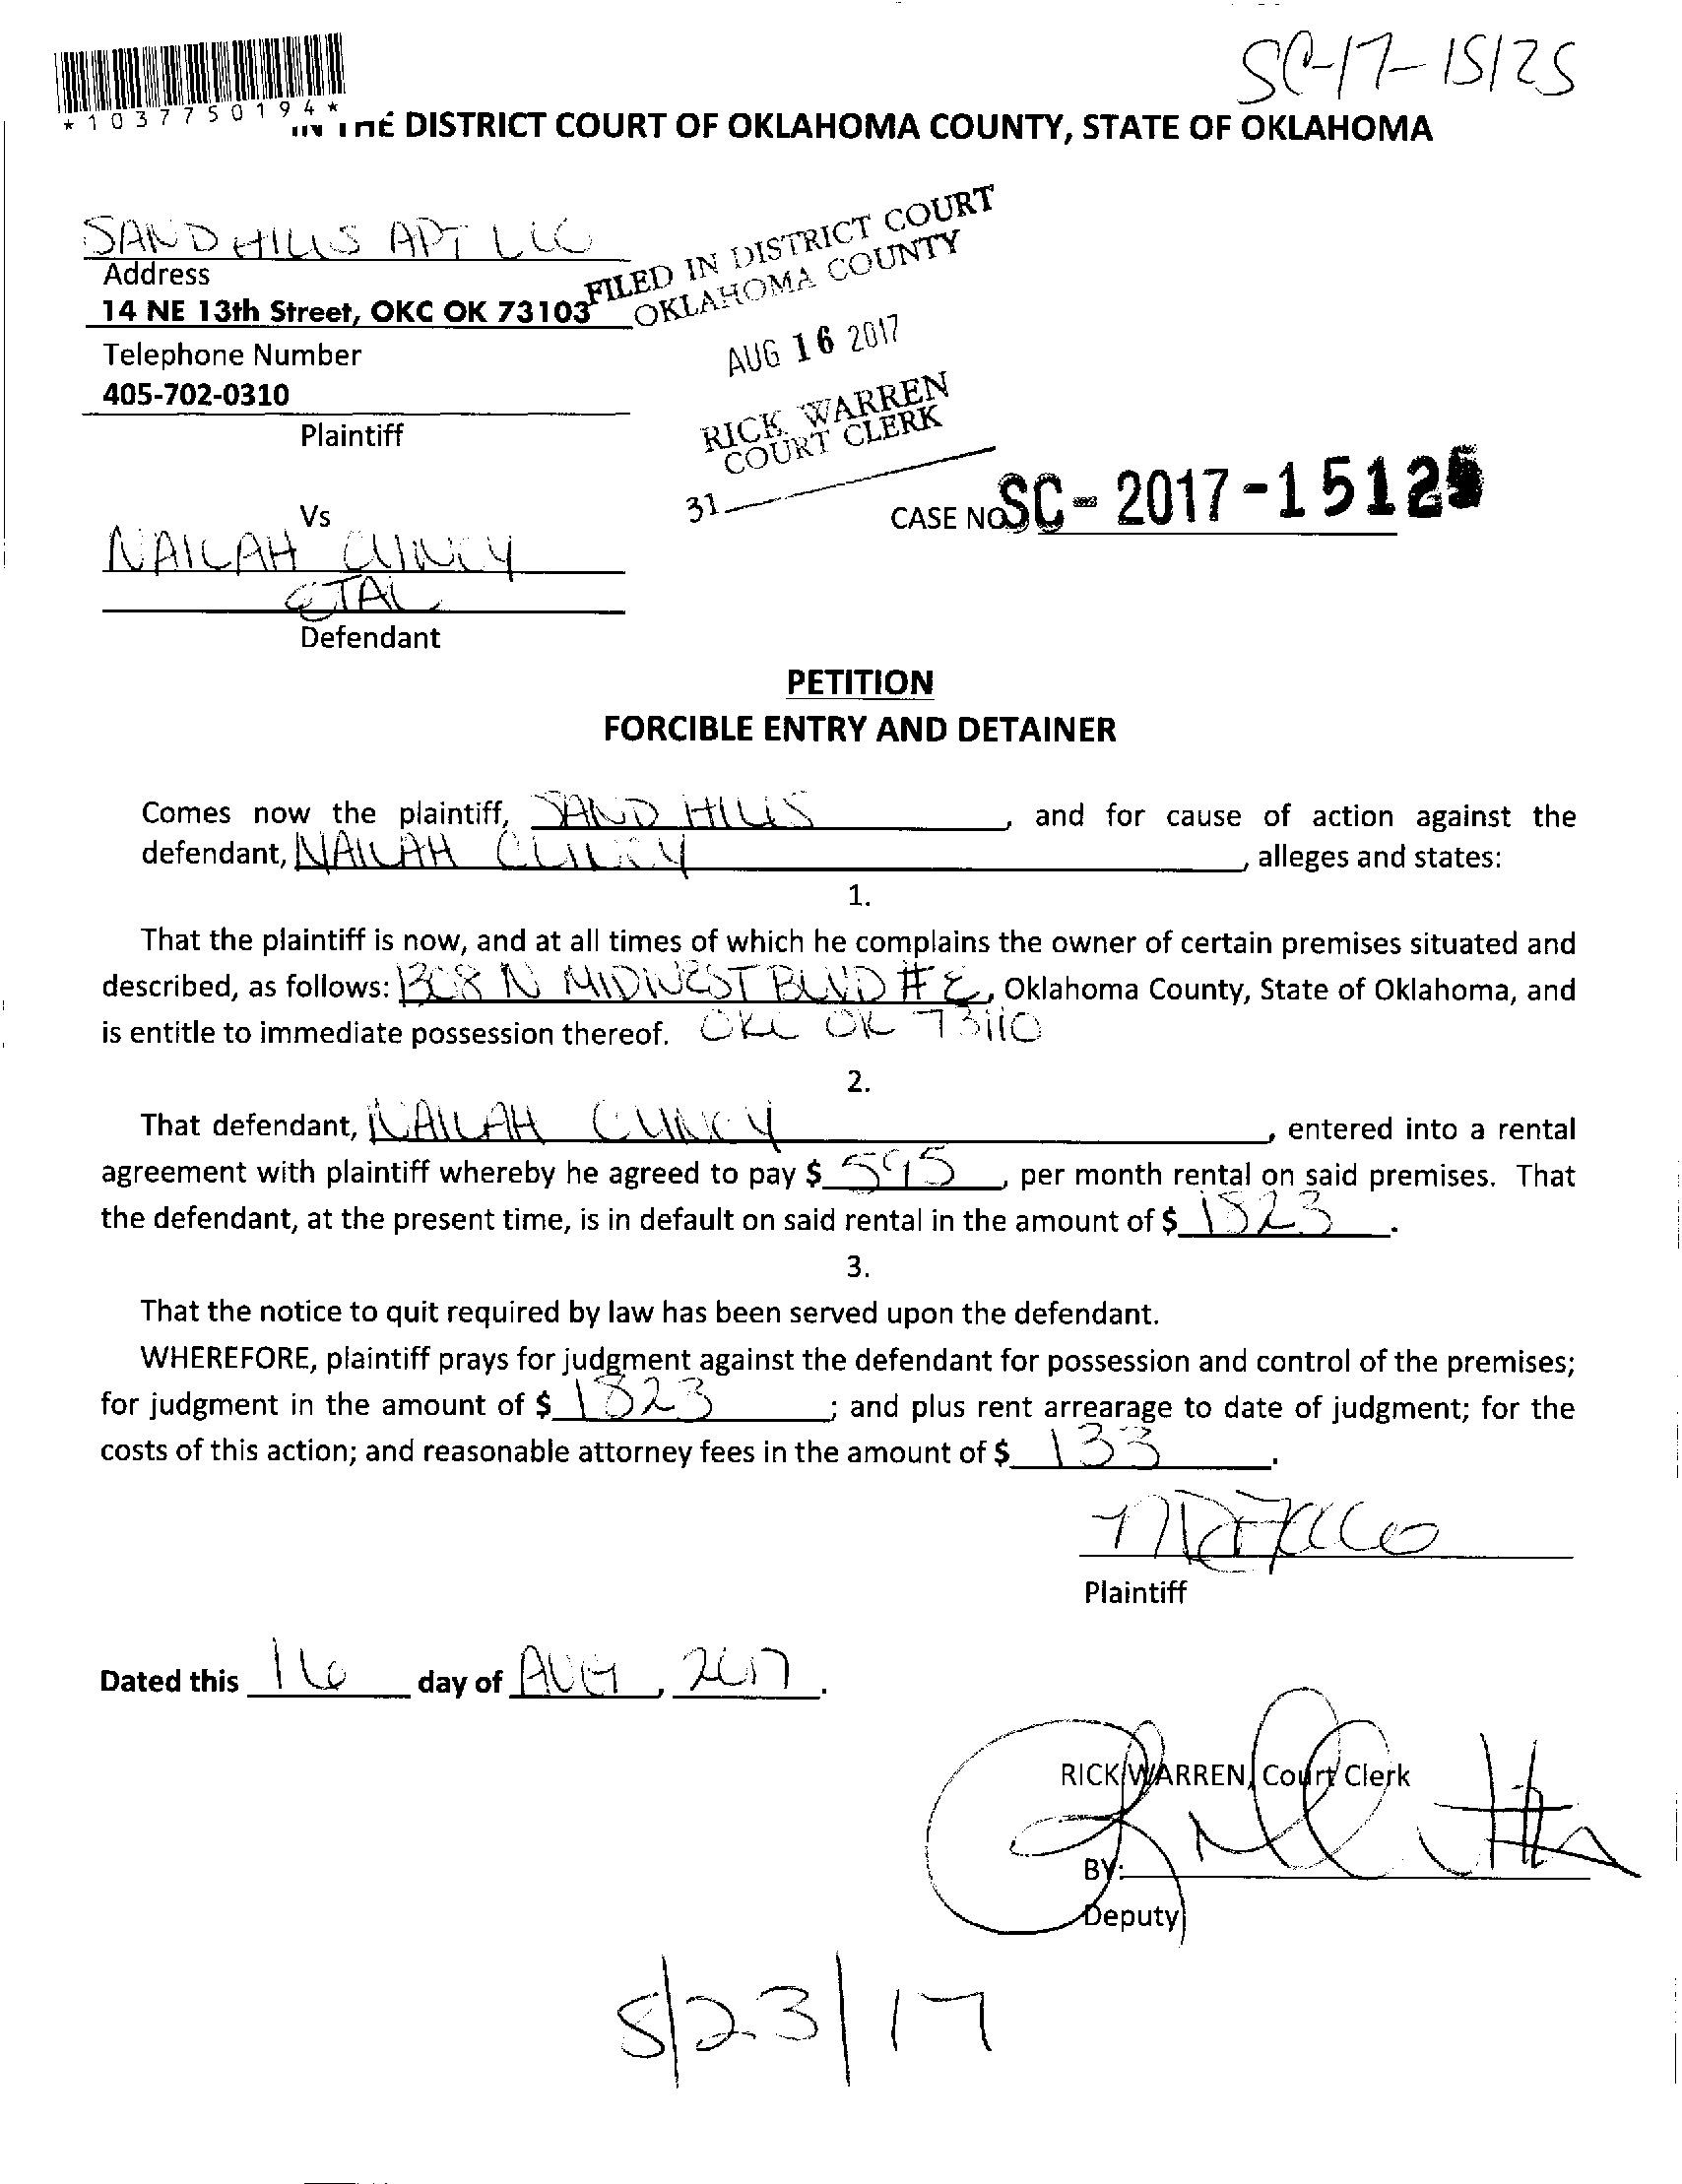 SC-17-15125
*1037750194*
IN THE DISTRICT COURT OF OKLAHOMA COUNTY, STATE OF OKLAHOMA
SAND HILLS APT LLC
Address
14 NE 13th Street, OKC OK 73103
Telephone Number
405-702-0310
Plaintiff
FILED IN DISTRICT COURT
OKLAHOMA COUNTY
AUG 16 2017
RICK WARREN
COURT CLERK
31
CASE NO SC-2017-15125
Vs
NAILAH
ETAL
Defendant
PETITION
FORCIBLE ENTRY AND DETAINER
Comes now the plaintiff, SAND HILLS, and for cause of action against the
defendant, NAILAH, alleges and states:
1.
That the plaintiff is now, and at all times of which he complains the owner of certain premises situated and
described, as follows: 1308 N MIDWEST BLVD # E, Oklahoma County, State of Oklahoma, and
is entitle to immediate possession thereof. OKC OK 73110
2.
That defendant, NAILAH, entered into a rental
agreement with plaintiff whereby he agreed to pay $ 595, per month rental on said premises. That
the defendant, at the present time, is in default on said rental in the amount of $ 1823.
3.
That the notice to quit required by law has been served upon the defendant.
WHEREFORE, plaintiff prays for judgment against the defendant for possession and control of the premises;
for judgment in the amount of $ 1823; and plus rent arrearage to date of judgment; for the
costs of this action; and reasonable attorney fees in the amount of $ 133.
Plaintiff
Dated this 16 day of AUG, 2017.
RICK WARREN, Court Clerk
BY:
Deputy
8/23/17